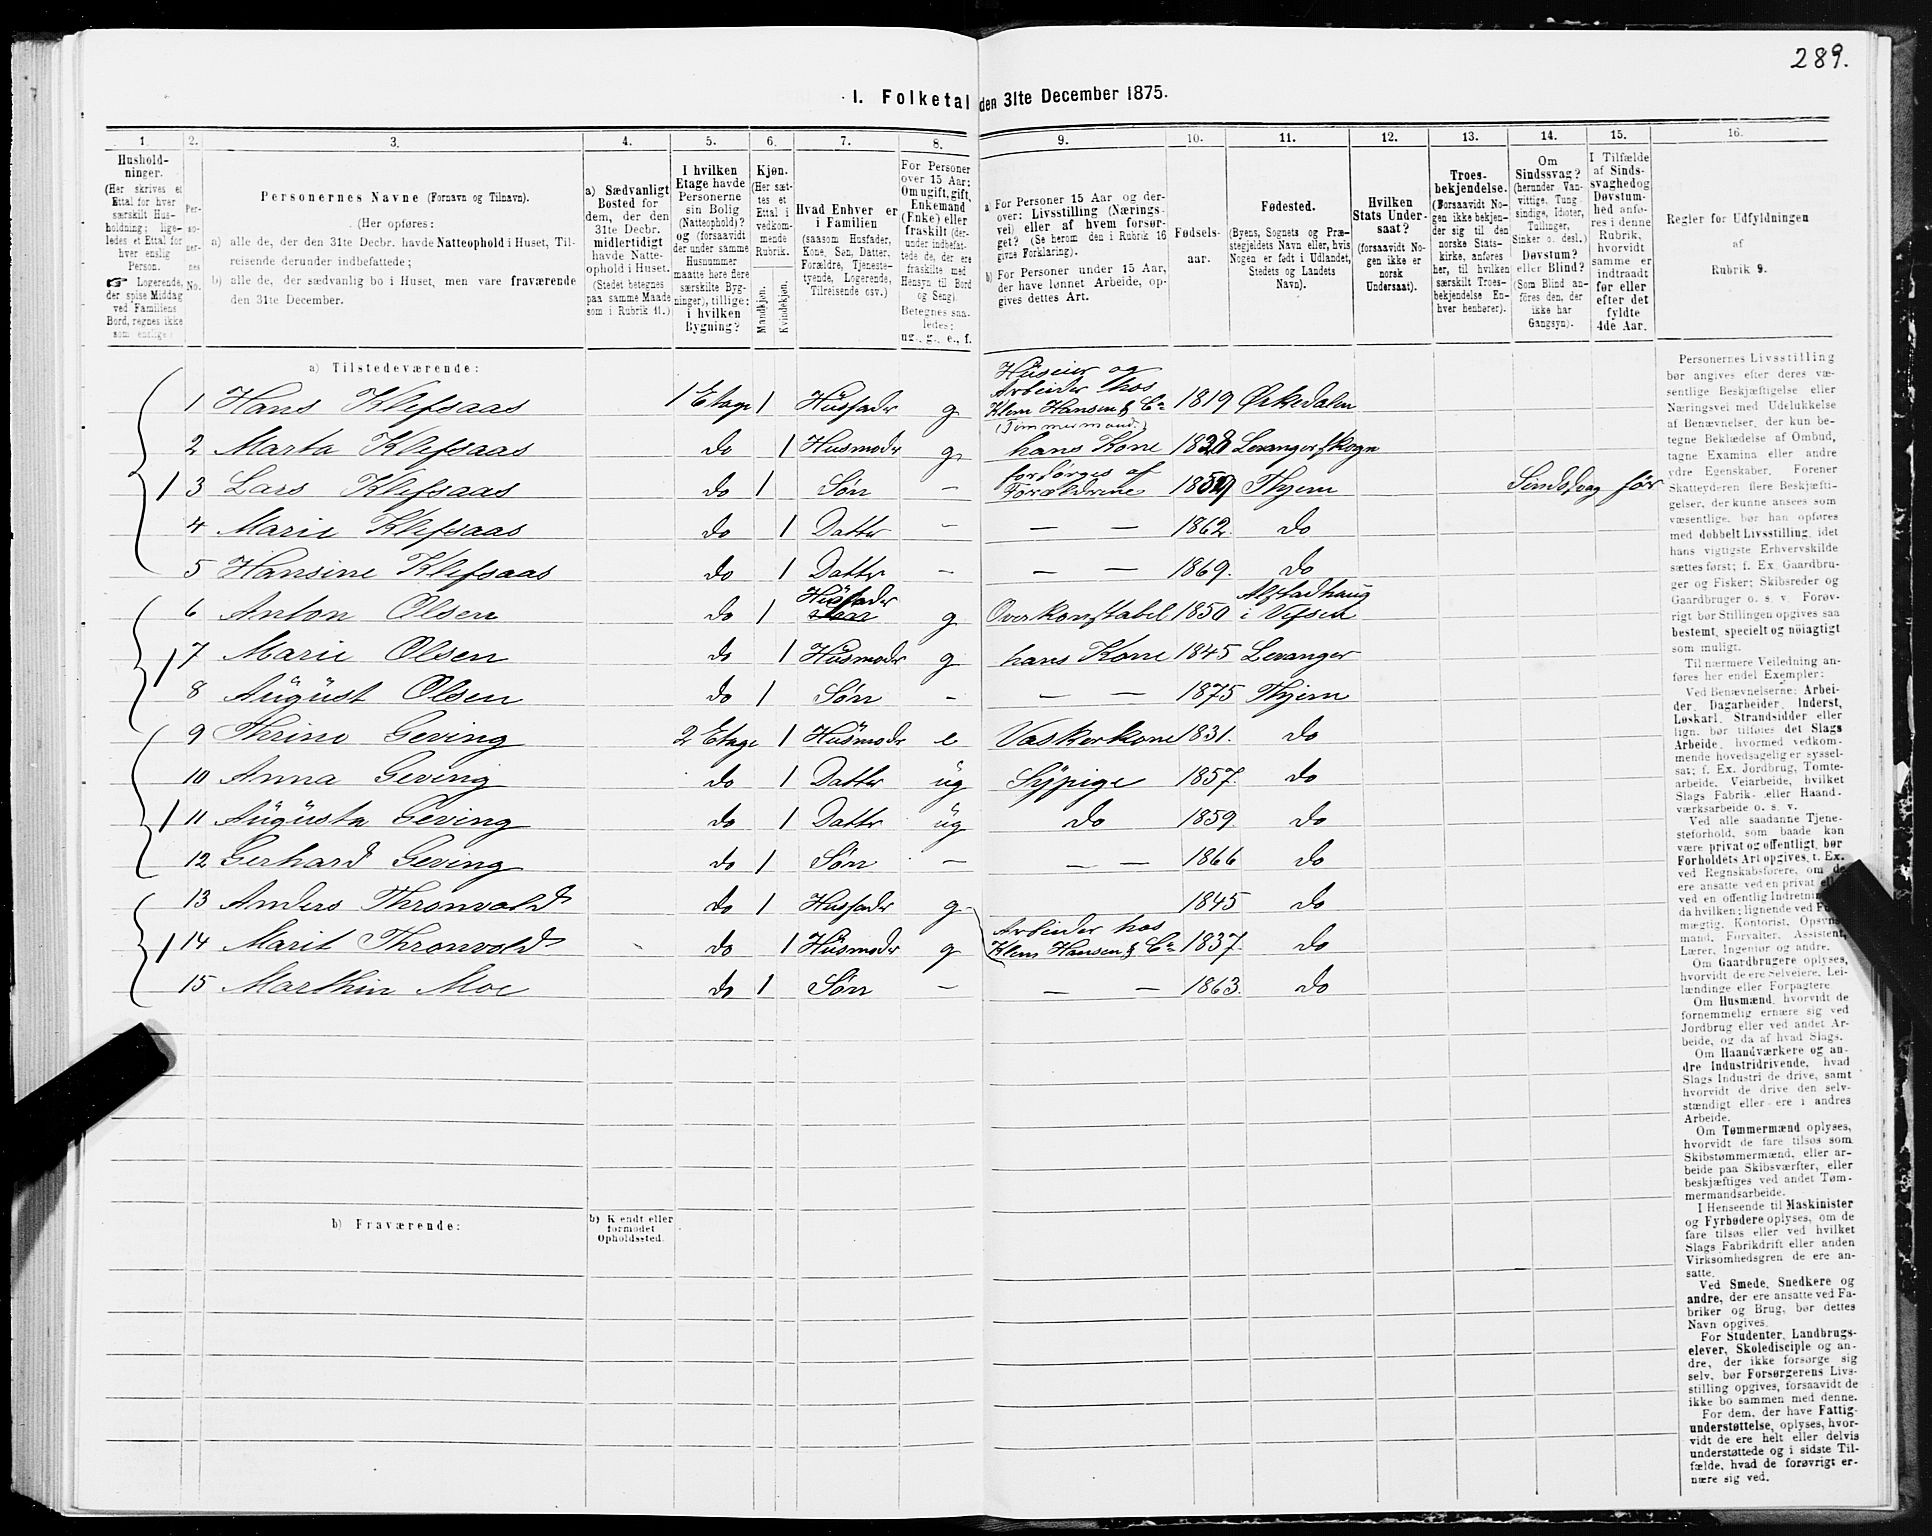 289.
I. Folketal den 31te December 1875.
1. 2. 3. 4. 5. 6. 7. 8. 9. 10. 11. 12. 13. 14. 15. 16.
Hushold-
ninger.
(Her skrives et
Ettal for hver
særskilt Hus-
holdning; lige-
ledes et Ettal for
hver enslig
Person.
☞ Logerende,
der spise Middag
ved Familiens
Bord, regnes ikke
som enslige)
Per-
so-
ner-
nes
No.
Personernes Navne (Fornavn og Tilnavn).
(Her opføres:
a) alle de, der den 31te Decbr. havde Natteophold i Huset, Til-
reisende derunder indbefattede;
b) alle de, der sædvanlig bo i Huset, men vare fraværende
den 31te December.
a) Sædvanligt
Bosted for
dem, der den
31te Decbr.
midlertidigt
havde Natte-
ophold i Huset.
(Stedet betegnes
paa samme Maade
som i Rubrik 11.)
I hvilken
Etage havde
Personerne
sin Bolig
(Natteophold)?
og (forsaavidt
der under samme
Husnummer
maatte høre flere
særskilte Byg-
ninger), tillige:
i hvilken
Bygning?
Kjøn.
(Her sæt-
tes et
Ettal i
vedkom-
mende
Rubrik.
Mandkjøn.
Kvindekjøn.
Hvad Enhver er
i Familien
(saasom Husfader,
Kone, Søn, Datter,
Forældre, Tjeneste-
tyende, Logerende,
Tilreisende osv.)
For Personer
over 15 Aar:
Om ugift, gift,
Enkemand
(Enke) eller
fraskilt (der-
under indbefat-
tede de, der ere
fraskilte med
Hensyn til Bord
og Seng).
Betegnes saa-
ledes:
ug., g., e., f.
a) For Personer 15 Aar og der-
over: Livsstilling (Nærings-
vei) eller af hvem forsør-
get? (Se herom den i Rubrik 16
givne Forklaring).
b) For Personer under 15 Aar,
der have lønnet Arbeide, op-
gives dettes Art.
Fødsels-
aar.
Fødested.
(Byens, Sognets og Præ-
stegjeldets Navn eller, hvis
Nogen er født i Udlandet,
Stedets og Landets
Navn).
Hvilken
Stats Under-
saat?
(forsaavidt No-
gen ikke er
norsk
Undersaat).
Troes-
bekjendelse.
(Forsaavidt No-
gen ikke bekjen-
der sig til den
norske Stats-
kirke, anføres
her, til hvilken
særskilt Troes-
bekjendelse En-
hver henhører).
Om
Sindssvag?
(herunder Van-
vittige, Tung-
sindige, Idioter,
Tullinger,
Sinker o. desl.)
Døvstum?
eller Blind?
(Som Blind an-
føres den, der
ikke har
Gangsyn).
I Tilfælde
af Sinds-
svaghed og
Døvstum-
hed anfø-
res i denne
Rubrik,
hvorvidt
samme er
indtraadt
før eller
efter det
fyldte
4de Aar.
Regler for Udfyldningen
af
Rubrik 9.
a) Tilstedeværende:
Huseier og
Arbeider hos
1 Hans Klefsaas 1 Etage 1 Husfader g Klem Hansen & Co 1819 Ørkedalen
(Tømmermand.)
2 Marta Klefsaas do 1 Husmoder g hans Kone 1828 Levanger Skogn
forsørges af
1 3 Lars Klefsaas do 1 Søn — Forældrene 1859 Hjem Sindssvag før
4 Marie Klefsaas do 1 Datter — — — 1862. do
5 Hansine Klefsaas do 1 Datter — — — 1869. do
Husfader Alstadhaug
6 Anton Olsen do 1 g Overkonstabel 1850 i Vefsen
1 7 Marie Olsen do 1 Husmoder g hans Kone 1845 Levanger
8 August Olsen do 1 Søn — — — 1875 Hjem
9 Thrine Geving 2 Etage 1 Husmoder e Vaskerkone 1831. do
10 Anna Geving do 1 Datter ug Sypige 1857. do
1 11 Augusta Geving do 1 Datter ug do 1859. do
12 Gerhard Geving do 1 Søn — — — 1866 do
13 Anders Thronvold do 1 Husfader g 1845 do
Arbeider hos
1 14 Marit Thronvold do 1 Husmoder g Klem Hansen & Co 1837. do
15 Marthin Moe do 1 Søn — — — 1863. do
b) Fraværende:
b) Kjendt eller
formodet
Opholdssted.
Personernes Livsstilling
bør angives efter deres væ-
sentlige Beskjæftigelse eller
Næringsvei med Udelukkelse
af Benævnelser, der kun be-
tegne Beklædelse af Ombud,
tagne Examina eller andre
ydre Egenskaber. Forener
Skatteyderen flere Beskjæfti-
gelser, der kunne ansees som
væsentlige, bør han opføres
med dobbelt Livsstilling, idet
hans vigtigste Erhvervskilde
sættes først; f. Ex. Gaardbru-
ger og Fisker; Skibsreder og
Gaardbruger o. s. v. Forøv-
rigt bør Stillingen opgives saa
bestemt, specielt og nöiagtigt
som muligt.
Til nærmere Veiledning an-
føres her endel Exempler:
Ved Benævnelserne: Arbei-
der, Dagarbeider, Inderst,
Løskarl, Strandsidder eller
lign. bør tilføies det Slags
Arbeide, hvormed vedkom-
mende hovedsagelig er syssel-
sat; f. Ex. Jordbrug, Tomte-
arbeide, Veiarbeide, hvilket
Slags Fabrik- eller Haand-
værksarbeide o. s. v.
Ved alle saadanne Tjene-
steforhold, som baade kan
være privat og offentligt, bør
Forholdets Art opgives, t. Ex.
ved Regnskabsførere, om de
ere ansatte ved en privat
ved en offentlig Indretning
da hvilken; lignende ved
mægtig, Kontorist, Opsyns-
mand, Forvalter, Assistent,
Lærer, Ingeniør og andre.
Om Gaardbrugere oplyses,
hvorvidt de ere Selveiere, Lei-
lændinge eller Forpagtere.
Om Husmænd, hvorvidt de
fornemmelig ernære sig ved
Jordbrug eller ved andet Ar-
beide, og da af hvad Slags.
Om Haandværkere og an-
dre Industridrivende, hvad
Slags Industri de drive, samt
hvorvidt de drive den selv-
stændigt eller ere i andres
Arbeide.
Om Tømmermænd oplyses,
hvorvidt de fare tilsøs som
Skibstømmermænd, eller ar-
beide paa Skibsværfter, eller
beskjæftiges ved andet Tøm-
mermandsarbeide.
I Henseende til Maskinister
og Fyrbødere oplyses, om de
fare tilsøs eller ved hvilket
Slags Fabrikdrift eller anden
Virksomhedsgren de ere an-
satte.
Ved Smede, Snedkere og
andre, der ere ansatte ved Fa-
briker og Brug, bør dettes
Navn opgives.
For Studenter, Landbrugs-
elever, Skoledisciple og an-
dre, der ikke forsørge sig
selv, bør Forsørgerens Livs-
stilling opgives, forsaavidt de
ikke bo sammen med denne.
For dem, der have Fattig-
understøttelse, oplyses, hvor-
vidt de ere helt eller delvis
understøttede og i sidste Til-
fælde, hvad de forøvrigt er-
nære sig ved.